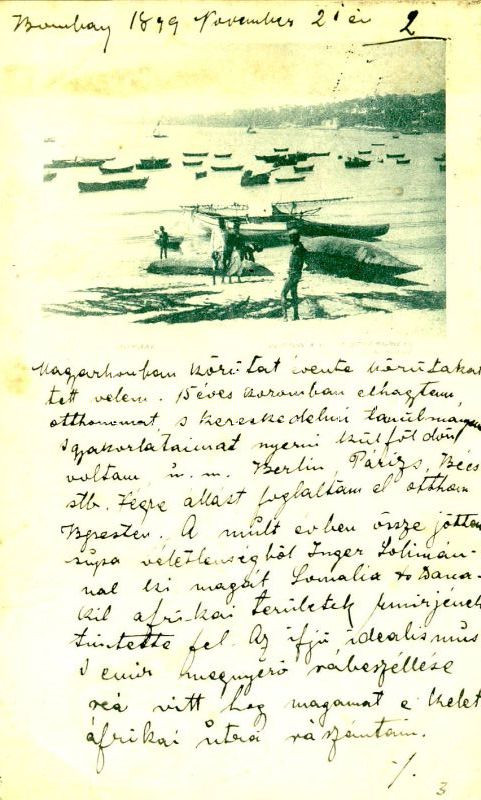 Bombay 1899 November 21 én
2
Magyarhonban körútat évente körútakat
tett velem. 15 éves koromban elhagytam
otthonomat, s kereskedelmi tanulmányom
s gyakorlataimat nyerni külföldön
voltam, u. m. Berlin, Párizs, Bécs
stb. Végre állást foglaltam el otthon
Bpesten. A múlt évben össze jöttem
supa véletlenségből Inger Solimán-
nal ki magát Somalia & Dana-
kil afrikai területek emirjének
tüntette fel. Az ifjú idealismus
s emir megnyerő rábeszéllése
reá vitt hog magamat e kelet
áfrikai útra rászántam.
3